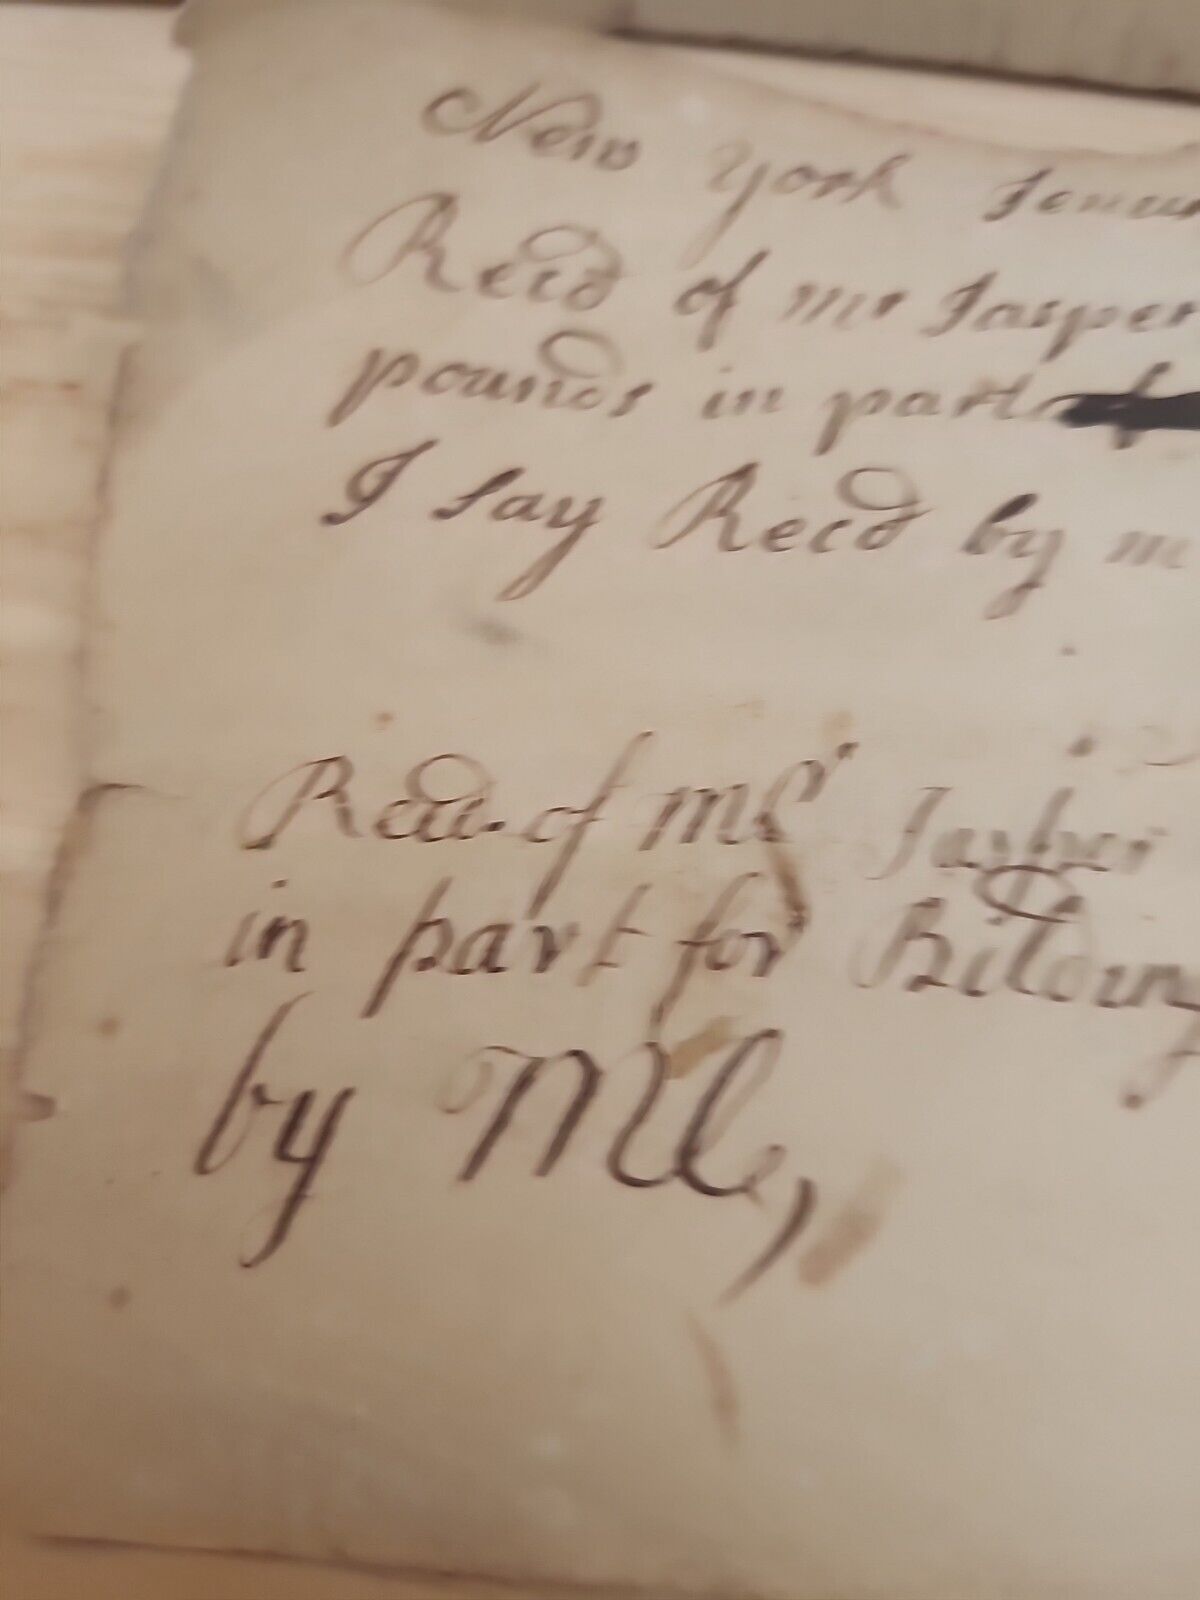 New York Jenu
Recd of mr Jasper
pounds in part of
I say Recd by m
Recd. of Mr Jasper
in part for Bilding
by Me,